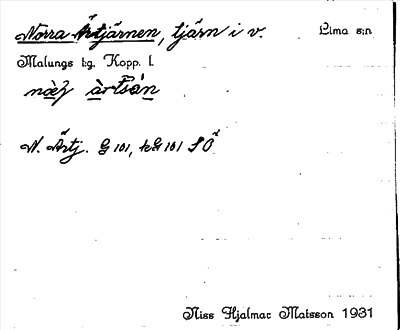 Norra Ärtjärnen, tjärn i v. Lima s:n
Malungs tg. Kopp. l.
N. Ärtj. G 101, kG 101 SO
Niss Hjalmar Matsson 1931